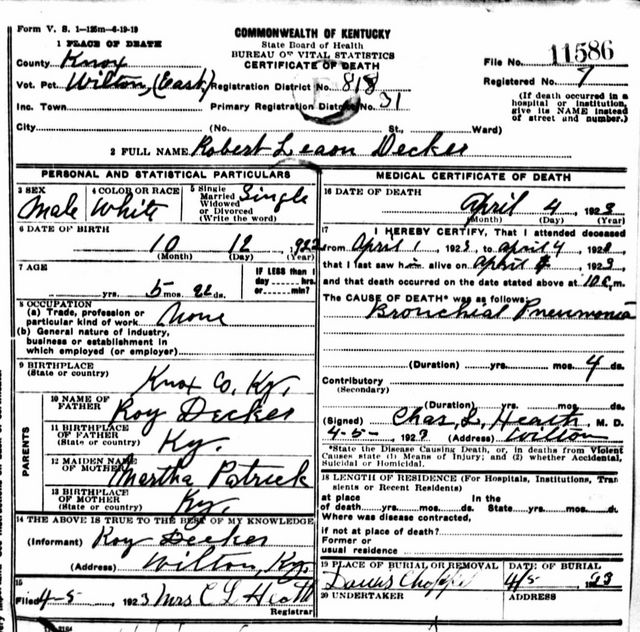 Form V. S. 1-125m-6-19-19
COMMONWEALTH OF KENTUCKY
State Board of Health
BUREAU OF VITAL STATISTICS
CERTIFICATE OF DEATH
1 PLACE OF DEATH
County Knox
Vot. Pct. Wilton, (East)
Inc. Town
City (No. St., Ward)
Registration District No. 818
Primary Registration District No. 31
File No. 11586
Registered No. 7
(If death occurred in a
hospital or institution,
give its NAME instead
of street and number.)
2 FULL NAME Robert Leaon Decker
PERSONAL AND STATISTICAL PARTICULARS
3 SEX Male
4 COLOR OR RACE White
5 Single
Married
Widowed
or Divorced
(Write the word) Single
6 DATE OF BIRTH
10 12 1922
(Month) (Day) (Year)
7 AGE
yrs. 5 mos. ds.
IF LESS than 1
day hrs.
or min?
8 OCCUPATION
(a) Trade, profession or
particular kind of work None
(b) General nature of industry,
business or establishment in
which employed (or employer)
9 BIRTHPLACE
(State or country) Knox Co, Ky.
PARENTS
10 NAME OF
FATHER Roy Decker
11 BIRTHPLACE
OF FATHER
(State or country) Ky.
12 MAIDEN NAME
OF MOTHER Martha Patrick
13 BIRTHPLACE
OF MOTHER
(State or country) Ky.
14 THE ABOVE IS TRUE TO THE BEST OF MY KNOWLEDGE
(Informant) Roy Decker
(Address) Wilton, Ky.
15
Filed 4-5-, 1923 Mrs C L Heath
Registrar
MEDICAL CERTIFICATE OF DEATH
16 DATE OF DEATH
April 4, 1923
(Month) (Day) (Year)
17 I HEREBY CERTIFY, That I attended deceased
from April 1, 1923, to April 4, 192
that I last saw him alive on April 4, 1923,
and that death occurred on the date stated above at 10 m.
The CAUSE OF DEATH* was as follows:
Bronchial Pneumonia
(Duration) yrs. mos. 4 ds.
Contributory
(Secondary)
(Duration) yrs. mos. ds.
(Signed) Chas. L. Heath, M. D.
4-5-, 1923 (Address) Wilton
*State the Disease Causing Death, or, in deaths from Violent
Causes state (1) Means of Injury; and (2) whether Accidental,
Suicidal or Homicidal.
18 LENGTH OF RESIDENCE (For Hospitals, Institutions, Tran
sients or Recent Residents)
at place In the
of death yrs. mos. ds. State yrs. mos. ds.
Where was disease contracted,
if not at place of death?
Former or
usual residence
19 PLACE OF BURIAL OR REMOVAL
DATE OF BURIAL
4/5 1923
20 UNDERTAKER
ADDRESS